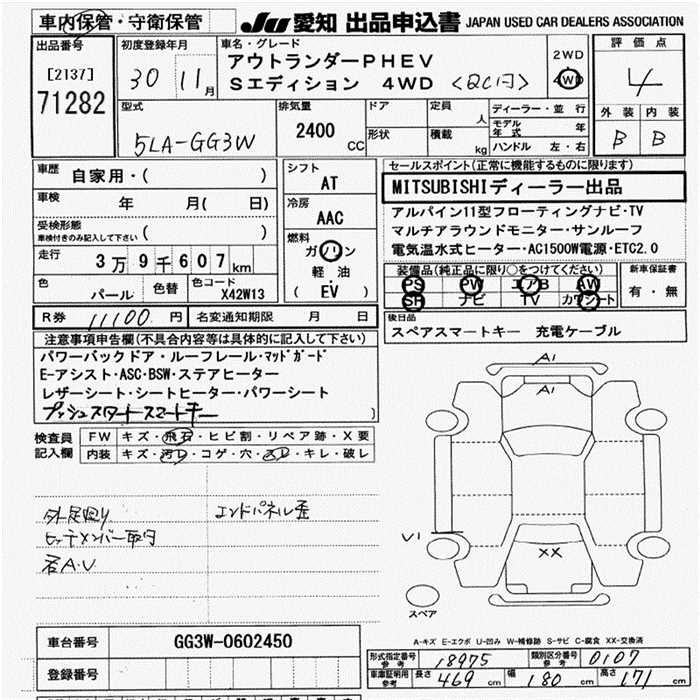 車内保管・守衛保管
JU 愛知 出品申込書 JAPAN USED CAR DEALERS ASSOCIATION
出品番号
[2137]
71282
初度登録年月
30 11月
車名・グレード
アウトランダーPHEV
Sエディション 4WD
2WD
4WD
評価点
4
外装 内装
B B
型式
5LA-GG3W
排気量
2400 CC
ドア
形状
定員 人
積載 kg
ディーラー・並行
モデル年式 年
ハンドル 左・右
車歴
自家用・( )
車検 年 月( 日)
受検形態
車検付きのみ記入して下さい ( )
走行 3万9千607km
色 パール
色替
色コード X42W13
シフト
AT
冷房
AAC
燃料
ガソリン
軽油
( EV )
セールスポイント(正常に機能するものに限ります)
MITSUBISHIディーラー出品
アルパイン11型フローティングナビ・TV
マルチアラウンドモニター・サンルーフ
電気温水式ヒーター・AC1500W電源・ETC2.0
装備品(純正品に限り○をつけてください)
PS PW エアB AW
SR ナビ TV カワシート
新車保証書
有・無
R券 11100円 名変通知期限 月 日
後日品
スペアスマートキー 充電ケーブル
注意事項申告欄(不具合内容等は具体的に記入して下さい)
パワーバックドア・ルーフレール・マッドガード
E-アシスト・ASC・BSW・ステアヒーター
レザーシート・シートヒーター・パワーシート
プッシュスタートスマートキー
)
検査員記入欄
FW キズ・飛石・ヒビ割・リペア跡・X要
内装 キズ・汚レ・コゲ・穴・スレ・キレ・破レ
外足廻り
エンドパネル歪
ヒッチメンバー取付
右A.V
A1
A1
V1
XX
スペア
A-キズ E-エクボ U-凹み W-補修跡 S-サビ C-腐食 XX-交換済
車台番号 GG3W-0602450
登録番号
形式指定番号 参考 18975
類別区分番号 参考 0107
車庫証明用 参考 長さ 469 cm 幅 180 cm 高さ 171 cm